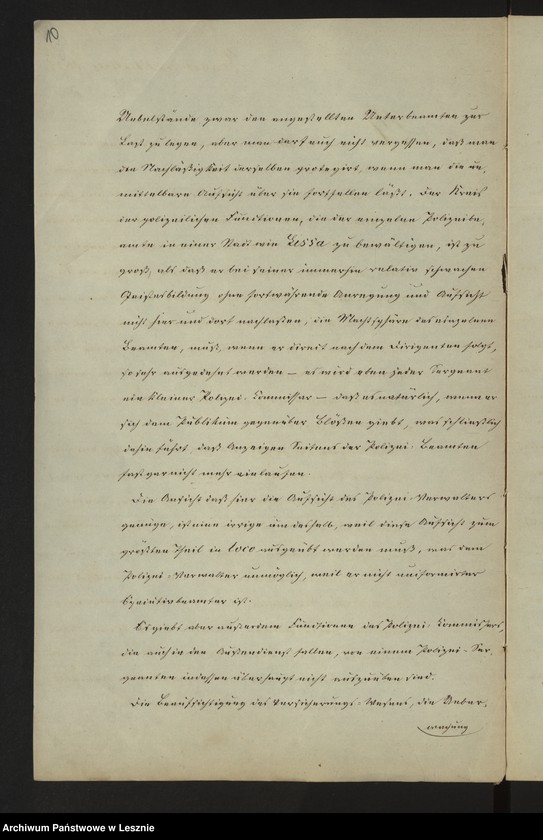 10
Uebelstände zwar den angestellten Unterbeamten zur
Last zu legen, aber man darf auch nicht vergessen, daß man
die Nachläßigkeit derselben protegirt, wenn man die un-
mittelbare Aufsicht über sie fortfallen läßt. Der Kreis
der polizeilichen Functionen, die der einzelne Polizeibe-
amte in einer Stadt wie Lissa zu bewältigen, ist zu
groß, als daß er bei seiner immerhin relativ schwachen
Geistesbildung ohne fortwährende Anregung und Aufsicht
nicht hier und dort nachlassen, die Machtsphäre des einzelnen
Beamten, muß, wenn er direct nach dem Dirigenten folgt,
so sehr ausgedehnt werden – es wird eben jeder Sergeant
ein kleiner Polizei-Commissar – daß es natürlich, wenn er
sich dem Publikum gegenüber Blößen giebt, was schließlich
dahin führt, daß Anzeigen Seitens der Polizei-Beamten
fast gar nicht mehr einlaufen.
Die Ansicht daß hier die Aufsicht des Polizei-Verwalters
genüge, ist eine irrige um deshalb, weil diese Aufsicht zum
größten Theil in loco ausgeübt werden muß, was dem
Polizei-Verwalter unmöglich, weil er nicht uniformirter
Executivbeamter ist.
Es giebt aber außerdem Functionen des Polizei-Commissars,
die auch in den Außendienst fallen, von einem Polizei-Ser-
geanten indessen überhaupt nicht auszuüben sind.
Die Beaufsichtigung des Versicherungs-Wesens, die Ueber-
wachung
Archiwum Państwowe w Lesznie